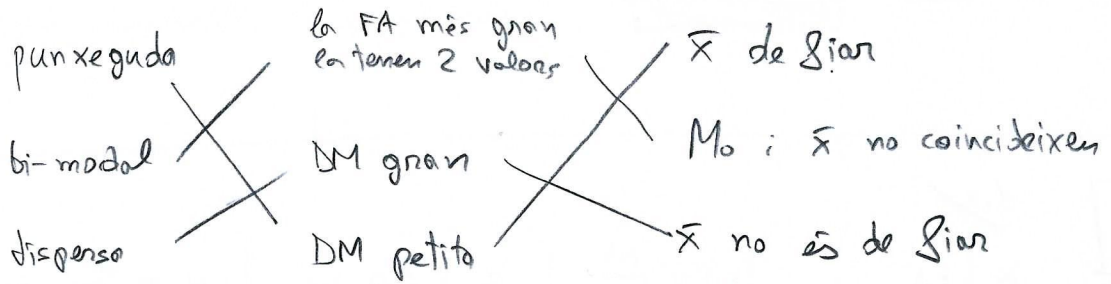 punxeguda
bi-modal
dispersa
la FA més gran
la tenen 2 valors
DM gran
DM petita
x̄ de fiar
Mo i x̄ no coincideixen
x̄ no és de fiar